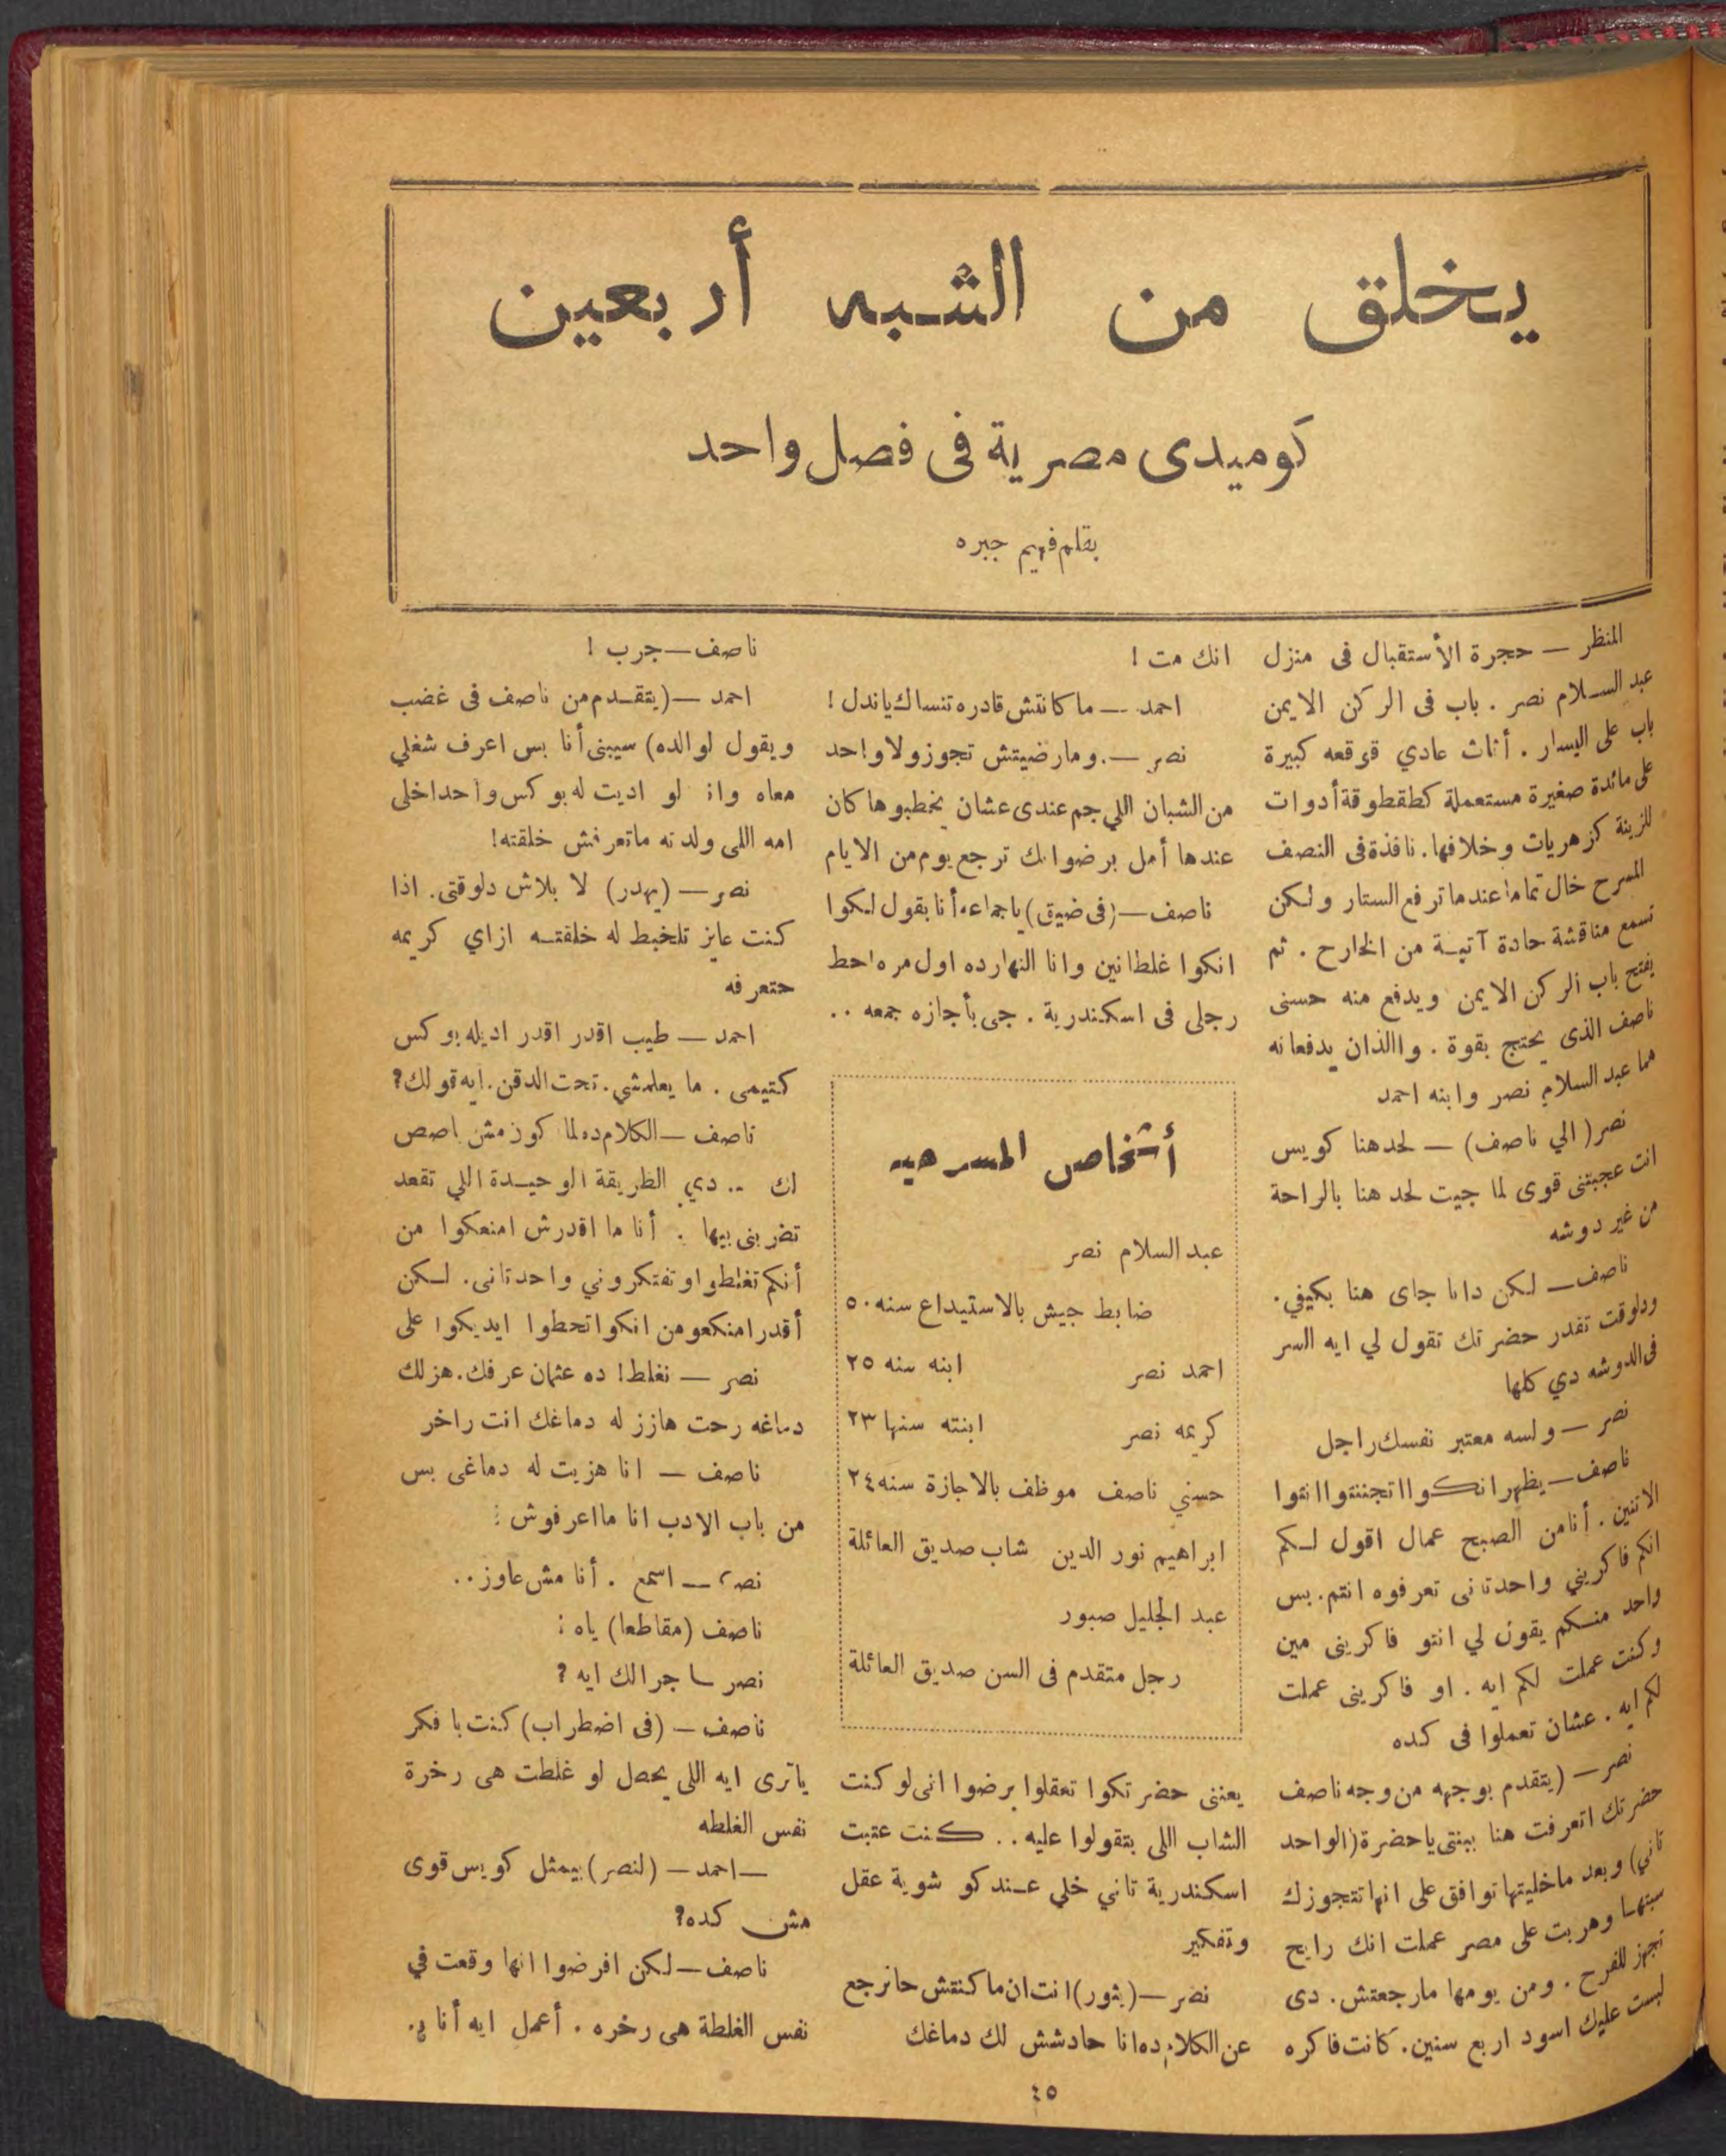 يخلق من الشبه أربعين
كوميدى مصرية فى فصل واحد
بقلم فهيم جبره
المنظر — حجرة الأستقبال فى منزل
عبد السلام نصر . باب فى الركن الايمن
باب على اليسار . أثاث عادي قوقعه كبيرة
على مائدة صغيرة مستعملة كطقطوقة أدوات
للزينة كزهريات وخلافها . نافذة فى النصف
المسرح خال تماما عندما ترفع الستار ولكن
تسمع مناقشة حادة آتية من الخارج . ثم
يفتح باب الركن الايمن ويدفع منه حسنى
ناصف الذى يحتج بقوة . واالذان يدفعانه
هما عبد السلام نصر وابنه احمد
نصر ( الي ناصف ) — لحد هنا كويس
انت عجبتنى قوى لما جيت لحد هنا بالراحة
من غير دوشه
ناصف — لكن دانا جاى هنا بكيفي .
ودلوقت تقدر حضرتك تقول لي ايه السر
فى الدوشه دي كلها
نصر — ولسه معتبر نفسك راجل
ناصف — يظهر انكوا اتجننتوا انتوا
الاتنين . أنا من الصبح عمال اقول لكم
انكم فاكريني واحد تانى تعرفوه انتم . بس
واحد منكم يقول لي انتو فاكرينى مين
وكنت عملت لكم ايه . او فاكرينى عملت
لكم ايه . عشان تعملوا فى كده
نصر — (يتقدم بوجهه من وجه ناصف
حضرتك اتعرفت هنا ببنتى ياحضرة (الواحد
تاني) وبعد ماخليتها توافق على انها تتجوزك
سبتها وهربت على مصر عملت انك رايح
تجهز للفرح . ومن يومها مارجعتش . دى
لبست عليك اسود اربع سنين . كانت فاكره
انك مت !
احمد — ما كانتش قادره تنساك ياندل !
نصر — . ومارضيتش تجوز ولا واحد
من الشبان اللي جم عندى عشان يخطبوها كان
عندها أمل برضوانك ترجع يوم من الايام
ناصف — (فى ضيق) ياجماعه أنا بقول لكوا
انكوا غلطانين وانا النهارده اول مره احط
رجلى فى اسكندرية . جى بأجازه جمعه ..
أشخاص المسرحيه
عبد السلام نصر
ضابط جيش بالاستيداع سنه ٥٠
احمد نصر ابنه سنه ٢٥
كريمه نصر ابنته سنها ٢٣
حسني ناصف موظف بالاجازة سنه ٢٤
ابراهيم نور الدين شاب صديق العائلة
عبد الجليل صبور
رجل متقدم فى السن صديق العائلة
يعننى حضرتكوا تعقلوا برضوا انى لو كنت
الشاب اللى بتقولوا عليه .. كنت عتبت
اسكندرية تاني خلي عندكو شوية عقل
وتفكير
نصر — (يثور) انت ان ما كنتش حاترجع
عن الكلام ده انا حادشش لك دماغك
ناصف — جرب !
احمد — (يتقدم من ناصف فى غضب
ويقول لوالده) سيبنى أنا بس اعرف شغلي
معاه وان لو اديت له بوكس واحد اخلى
امه اللى ولدته ماتعرفش خلقته !
نصر — (يهدر) لا بلاش دلوقتى . اذا
كنت عايز تلخبط له خلقته ازاي كريمه
حتعرفه
احمد — طيب اقدر اقدر اديله بوكس
كتيمى . ما يعلمشي . تحت الدقن . ايه قولك ؟
ناصف — الكلام ده لما كون مش باصص
لك .. دي الطريقة الوحيدة اللي تقعد
تضربنى بيها . أنا ما اقدرش امنعكوا من
أنكم تغلطوا وتفتكروني واحد تانى . لكن
أقدر امنكعو من انكوا تحطوا ايديكوا على
نصر — نغلط ! ده عثمان عرفك . هزلك
دماغه رحت هازز له دماغك انت راخر
ناصف — انا هزيت له دماغى بس
من باب الادب انا ما اعرفوش !
نصر — اسمع . أنا مش عاوز ..
ناصف (مقاطعا) ياه !
نصر — جرالك ايه ؟
ناصف — (فى اضطراب) كنت بافكر
ياترى ايه اللى يحصل لو غلطت هى رخرة
نفس الغلطه
— احمد — (لنصر) بيمثل كويس قوى
مش كده ؟
ناصف — لكن افرضوا انها وقعت في
نفس الغلطة هى رخره . أعمل ايه أنا
٤٥